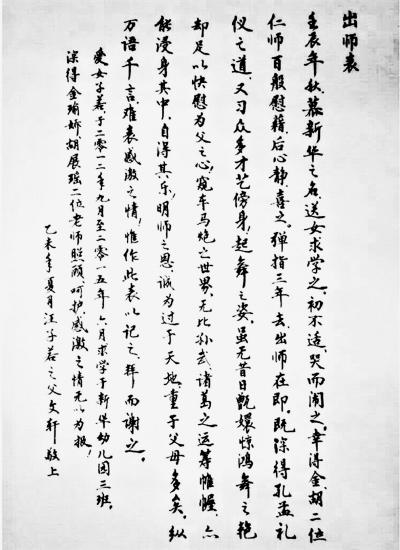 出师表
壬辰年秋，慕新华之名送女求学之，初不适，哭而闹之。幸得金胡二位
仁师百般慰藉，后心静，喜之。弹指三年去，出师在即，既深得孔孟礼
仪之道，又习众多才艺傍身，起舞之姿，虽无昔日甄嬛惊鸿舞之艳
却足以快慰为父之心，窥车马炮之世界，无比孙武、诸葛之运筹帷幄，亦
能浸身其中，自得其乐，明师之恩，诚为过于天地，重于父母多矣，纵
万语千言，难表感激之情，惟作此表以记之，拜而谢之。
爱女子若于二零一二年九月至二零一五年六月求学于新华幼儿园三班，
深得金瑜娇、胡展瑶二位老师照顾呵护，感激之情无以为报！
乙未年夏月汪子若之父文轩敬上